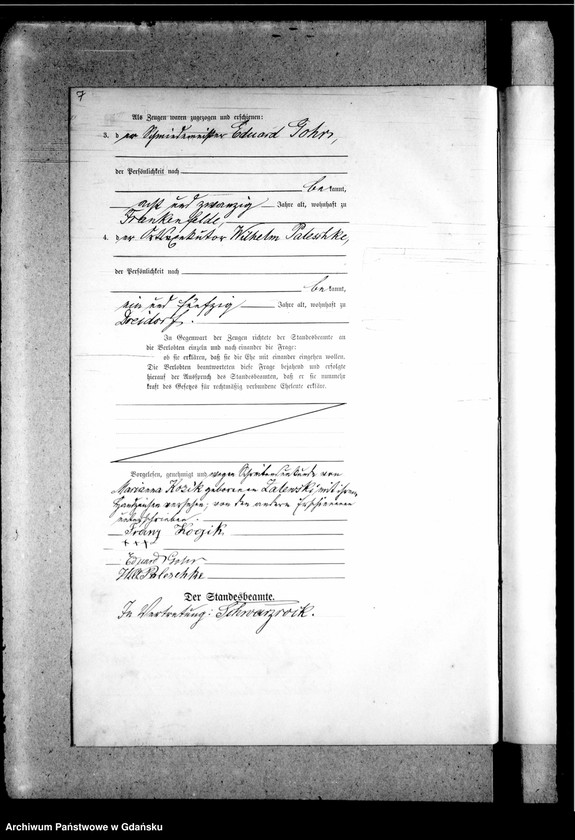 7
Als Zeugen waren zugezogen und erschienen:
3. der Schmiedemeister Eduard Gohr,
der Persönlichkeit nach
bekannt,
acht und zwanzig Jahre alt, wohnhaft zu
Frankenfelde,
4. der Ortsexekutor Wilhelm Paleschke,
der Persönlichkeit nach
bekannt,
ein und fünfzig Jahre alt, wohnhaft zu
Dreidorf.
In Gegenwart der Zeugen richtete der Standesbeamte an
die Verlobten einzeln und nach einander die Frage:
ob sie erklären, daß sie die Ehe mit einander eingehen wollen.
Die Verlobten beantworteten diese Frage bejahend und erfolgte
hierauf der Ausspruch des Standesbeamten, daß er sie nunmehr
kraft des Gesetzes für rechtmäßig verbundene Eheleute erkläre.
Vorgelesen, genehmigt und wegen Schreibensunkunde von
Marianna Kozik geborenen Zalewski mit ihrem
Handzeichen versehen; von den andern Erschienenen
unterschrieben.
Franz Kozik.
+++
Eduard Gohr
Wilh Paleschke
Der Standesbeamte.
In Vertretung: Schwarzrock.
Archiwum Państwowe w Gdańsku